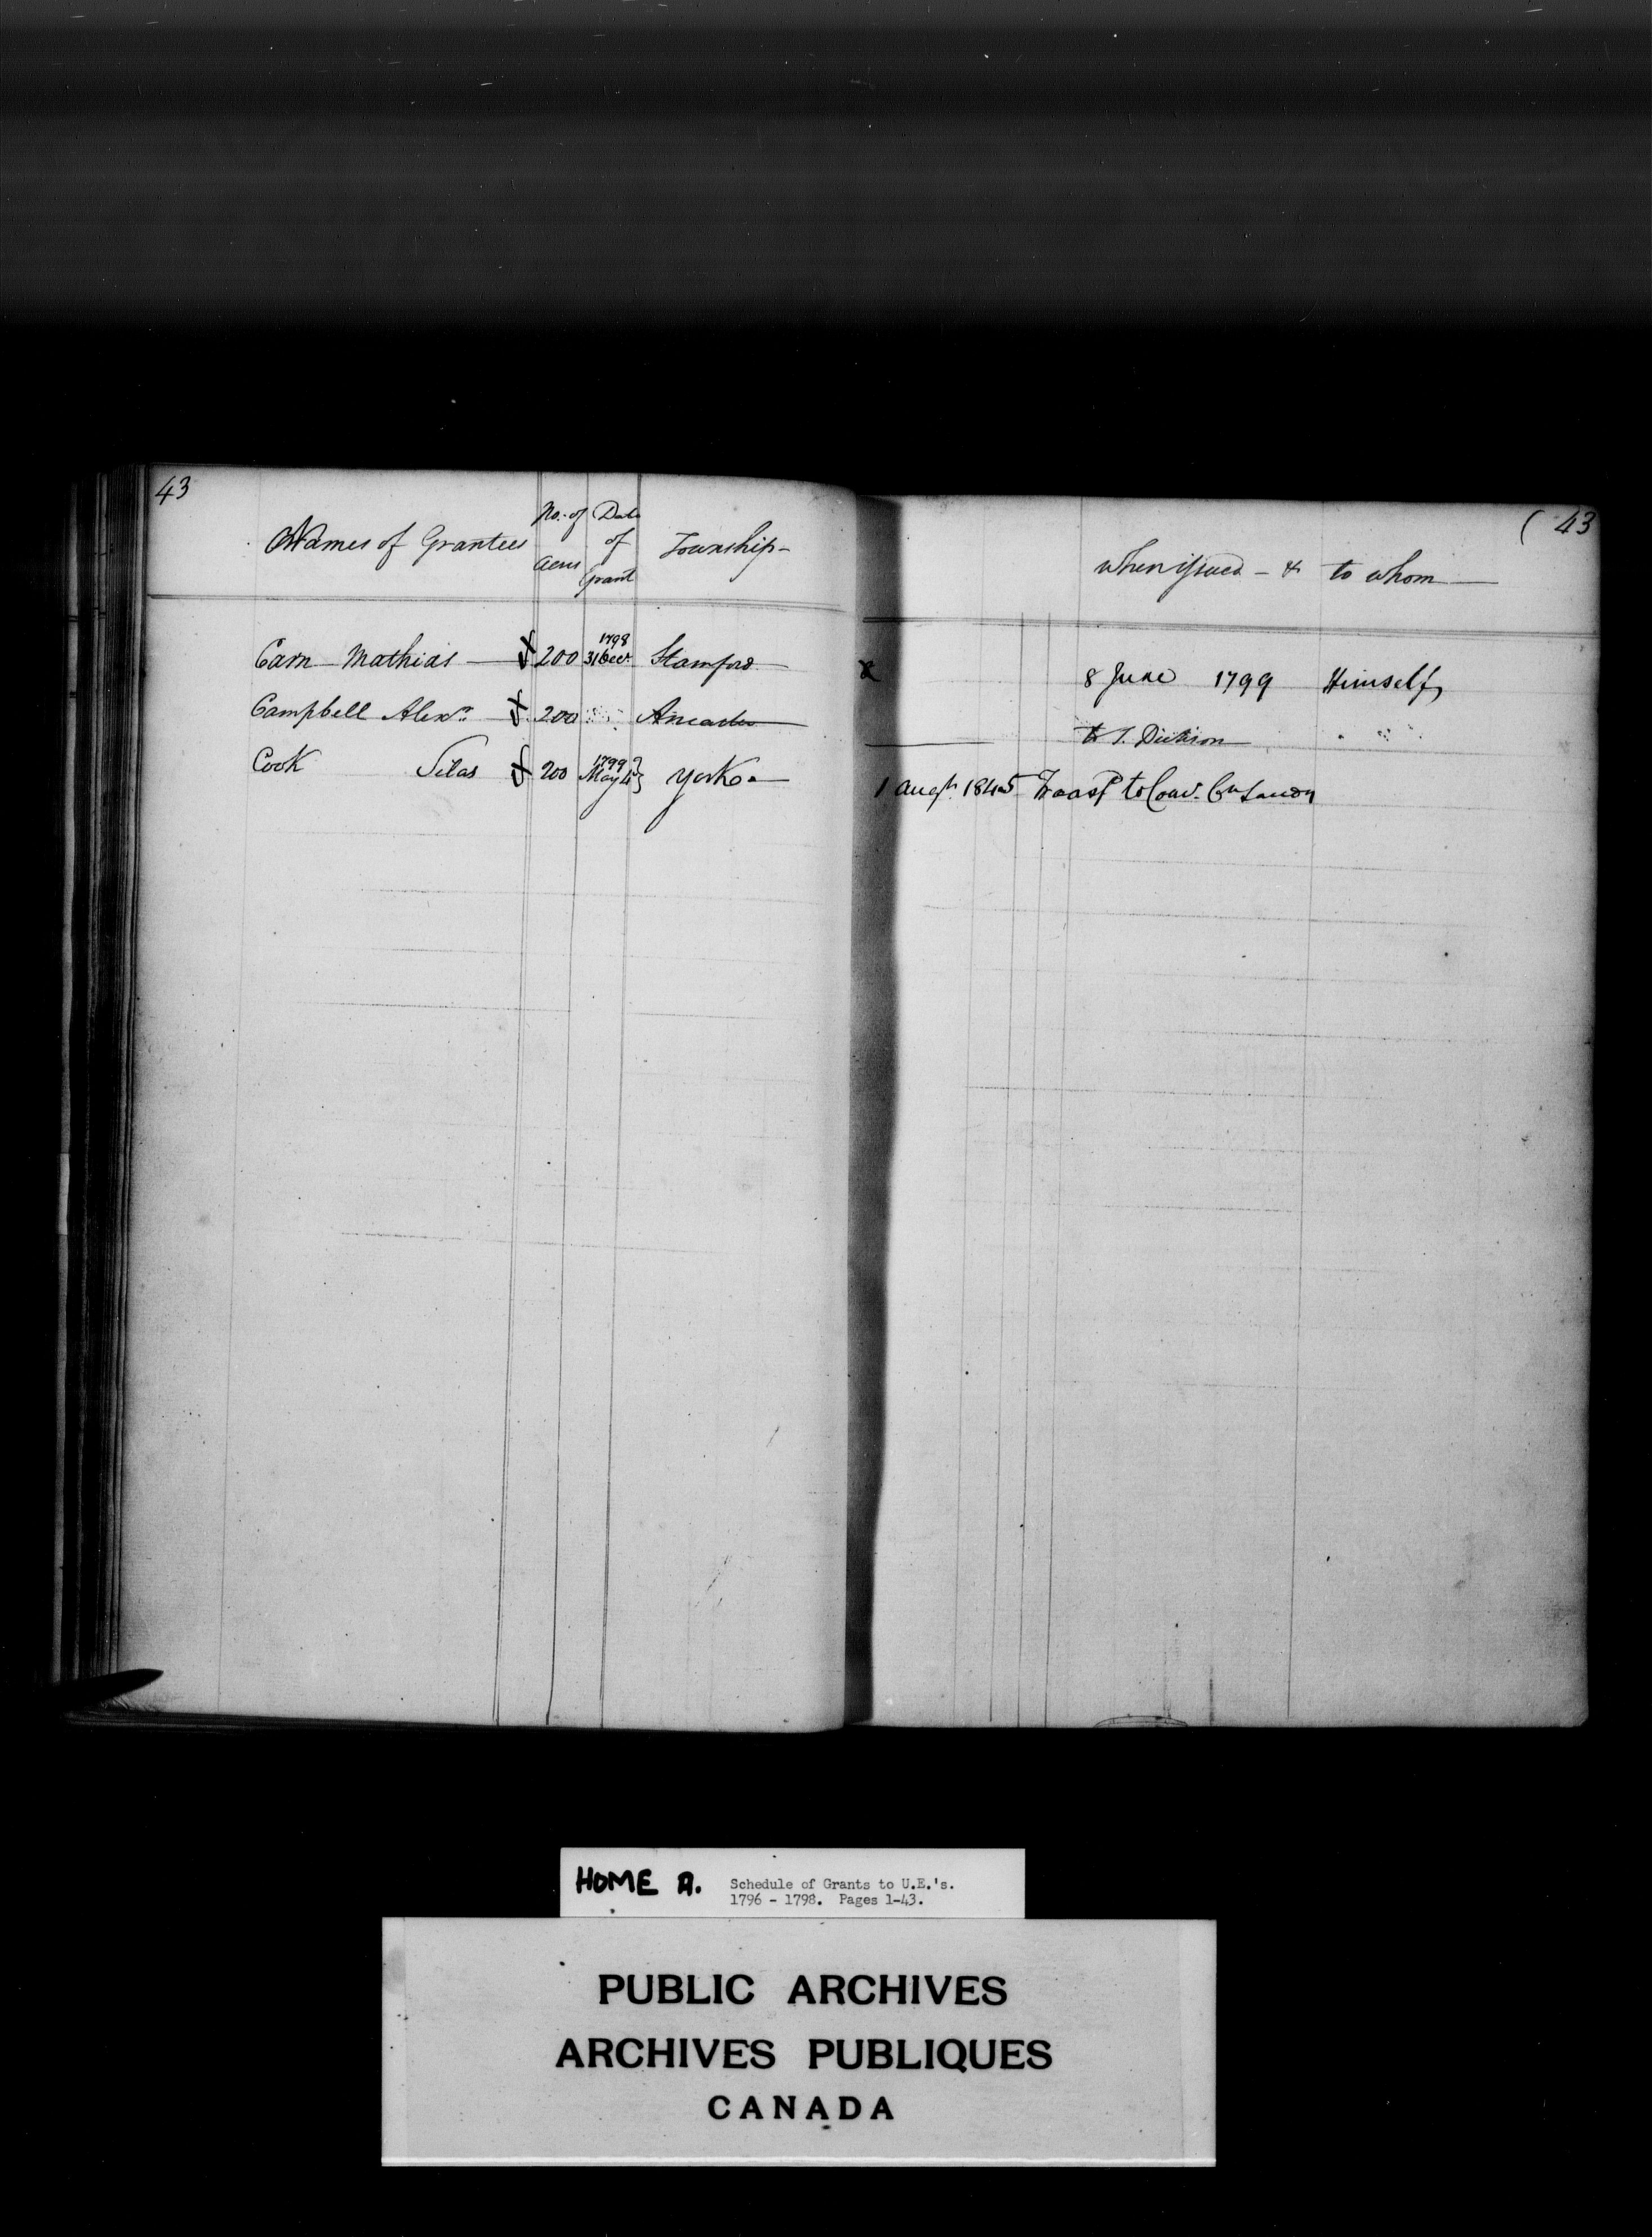 43
Names of Grantees No. of Acres Date of Grant Township
( 43
When issued - & to whom
Carn Mathias 200 1798 31 Decr. Stamford 8 June 1799 Himself
Campbell Alexr. 200 Ancaster to T. Dickson
Cook Silas 200 1799 May 4 York 1 Augt. 1845 to
HOME A.
Schedule of Grants to U.E.'s.
1796 - 1798. Pages 1-43.
PUBLIC ARCHIVES
ARCHIVES PUBLIQUES
CANADA